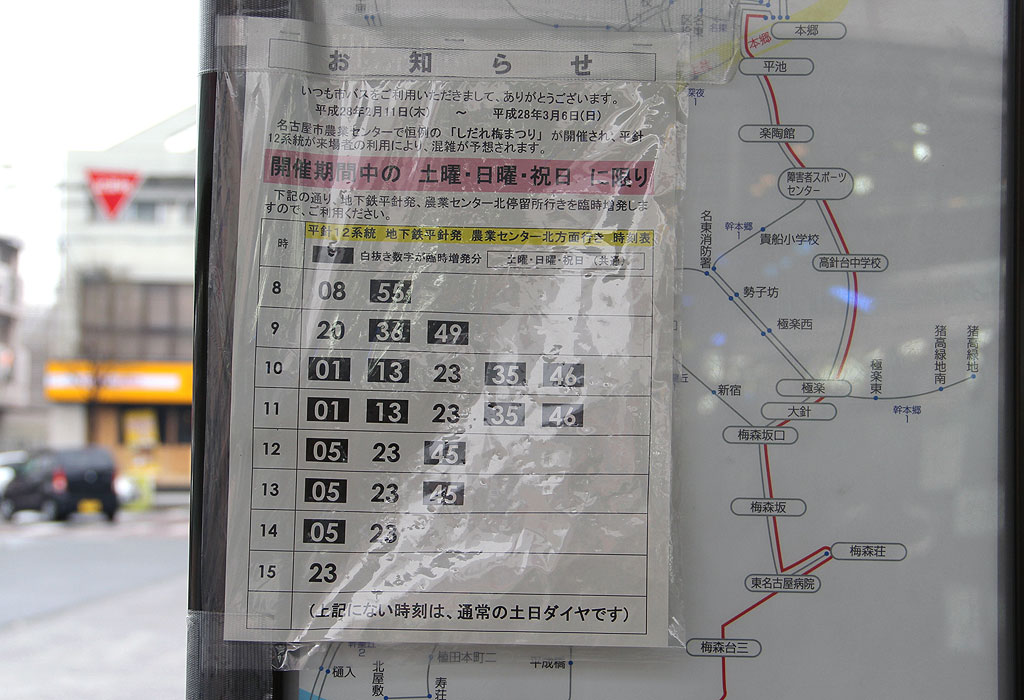 お知らせ
いつも市バスをご利用いただきまして、ありがとうございます。
平成28年2月11日(木) ～ 平成28年3月6日(日)
名古屋市農業センターで恒例の「しだれ梅まつり」が開催され、平針
12系統が来場者の利用により、混雑が予想されます。
開催期間中の 土曜・日曜・祝日 に限り
下記の通り、地下鉄平針発、農業センター北停留所行きを臨時増発しま
すので、ご利用ください。
時
平針12系統 地下鉄平針発 農業センター北方面行き 時刻表
白抜き数字が臨時増発分 土曜・日曜・祝日 (共通)
8 08 55
9 20 36 49
10 01 13 23 35 46
11 01 13 23 35 46
12 05 23 45
13 05 23 45
14 05 23
15 23
(上記にない時刻は、通常の土日ダイヤです)
本郷
本郷
平池
深夜
1
楽陶館
障害者スポーツ
センター
名東消防署
幹本郷
1
貴船小学校
高針台中学校
勢子坊
極楽西
猪高緑地南
猪高緑地
極楽東
極楽
新宿
幹本郷
1
大針
梅森坂口
梅森坂
梅森荘
東名古屋病院
梅森台三
植田本町二
平成橋
樋入
北屋敷
寿荘